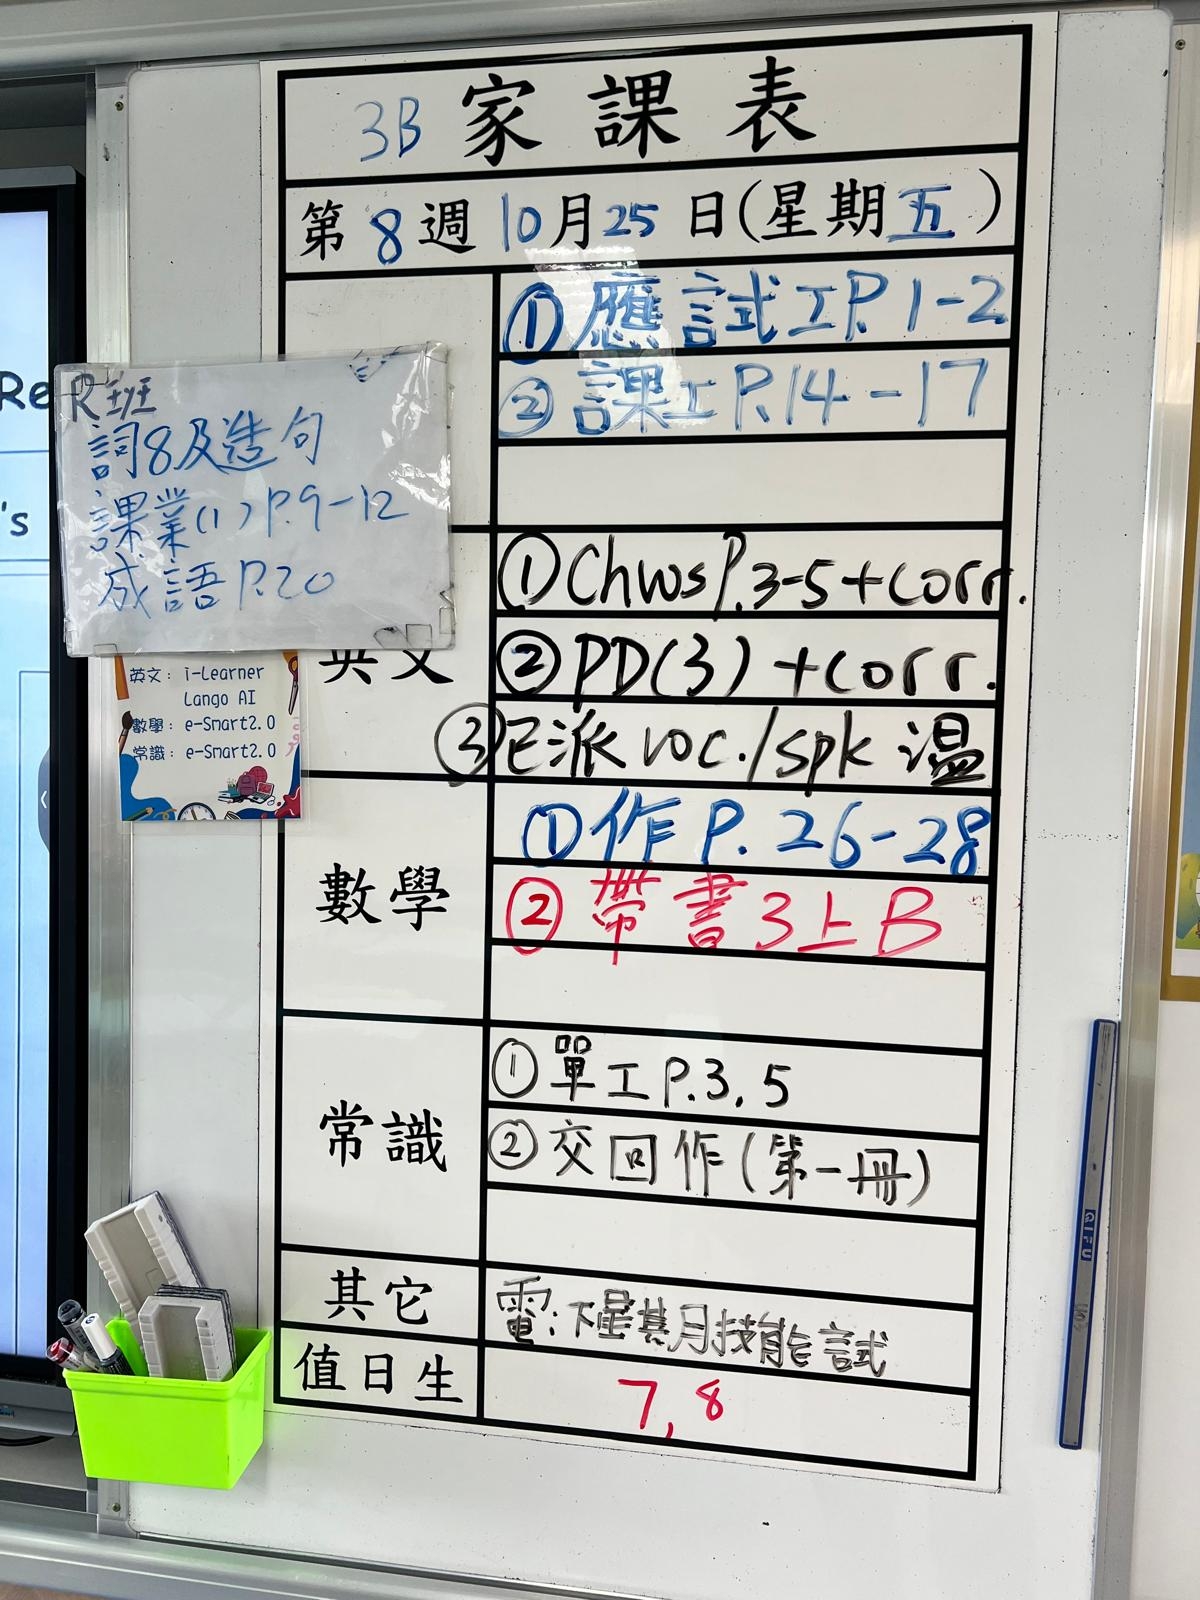 3B 家課表
第8週10月25日(星期五)
①應試工P.1-2
②課工P.14-17
R班
詞8及造句
課業(1)P.9-12
成語P.20
英文
①Chws P.3-5+corr.
②PD(3)+corr.
③E派voc./spk 溫
英文：i-Learner
Lango AI
數學：e-Smart2.0
常識：e-Smart2.0
數學
①作P.26-28
②帶書3上B
常識
①單工P.3,5
②交回作(第一冊)
其它
電:下星其月技能試
值日生
7,8
Re
's
QIFU